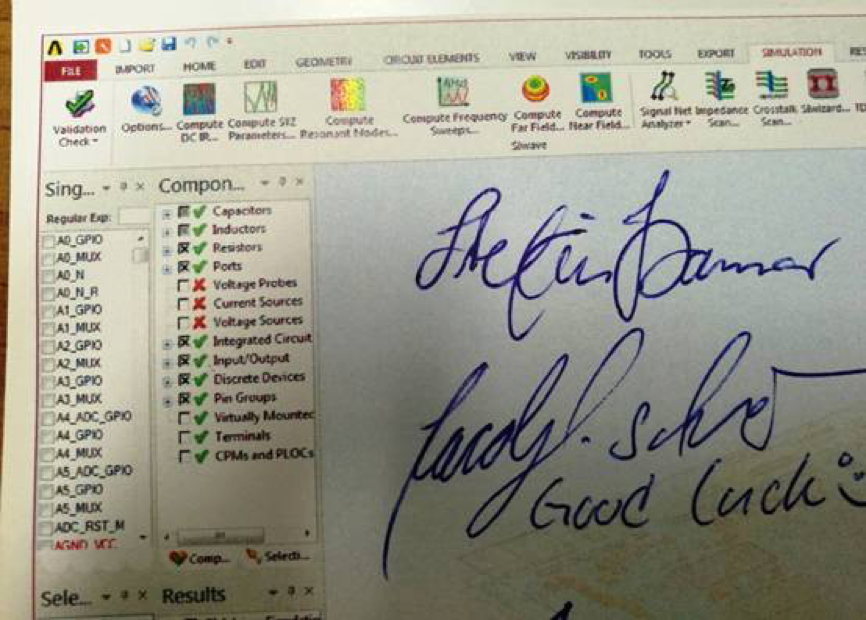 FILE IMPORT HOME EDIT GEOMETRY CIRCUIT ELEMENTS VIEW VISIBILITY TOOLS EXPORT SIMULATION RES
Validation Check
Options...
Compute DC IR...
Compute SYZ Parameters...
Compute Resonant Modes...
Compute Frequency Sweeps...
Compute Far Field...
Compute Near Field...
Signal Net Analyzer
Impedance Scan...
Crosstalk Scan...
SIwizard...
SIwave
Sing...
Regular Exp:
A0_GPIO
A0_MUX
A0_N
A0_N_R
A1_GPIO
A1_MUX
A2_GPIO
A2_MUX
A3_GPIO
A3_MUX
A4_ADC_GPIO
A4_GPIO
A4_MUX
A5_ADC_GPIO
A5_GPIO
A5_MUX
ADC_RST_M
AGND_VCC
Compon...
Capacitors
Inductors
Resistors
Ports
Voltage Probes
Current Sources
Voltage Sources
Integrated Circuit
Input/Output
Discrete Devices
Pin Groups
Virtually Mountec
Terminals
CPMs and PLOCs
Comp... Selecti...
Sele...
Results
Good Luck